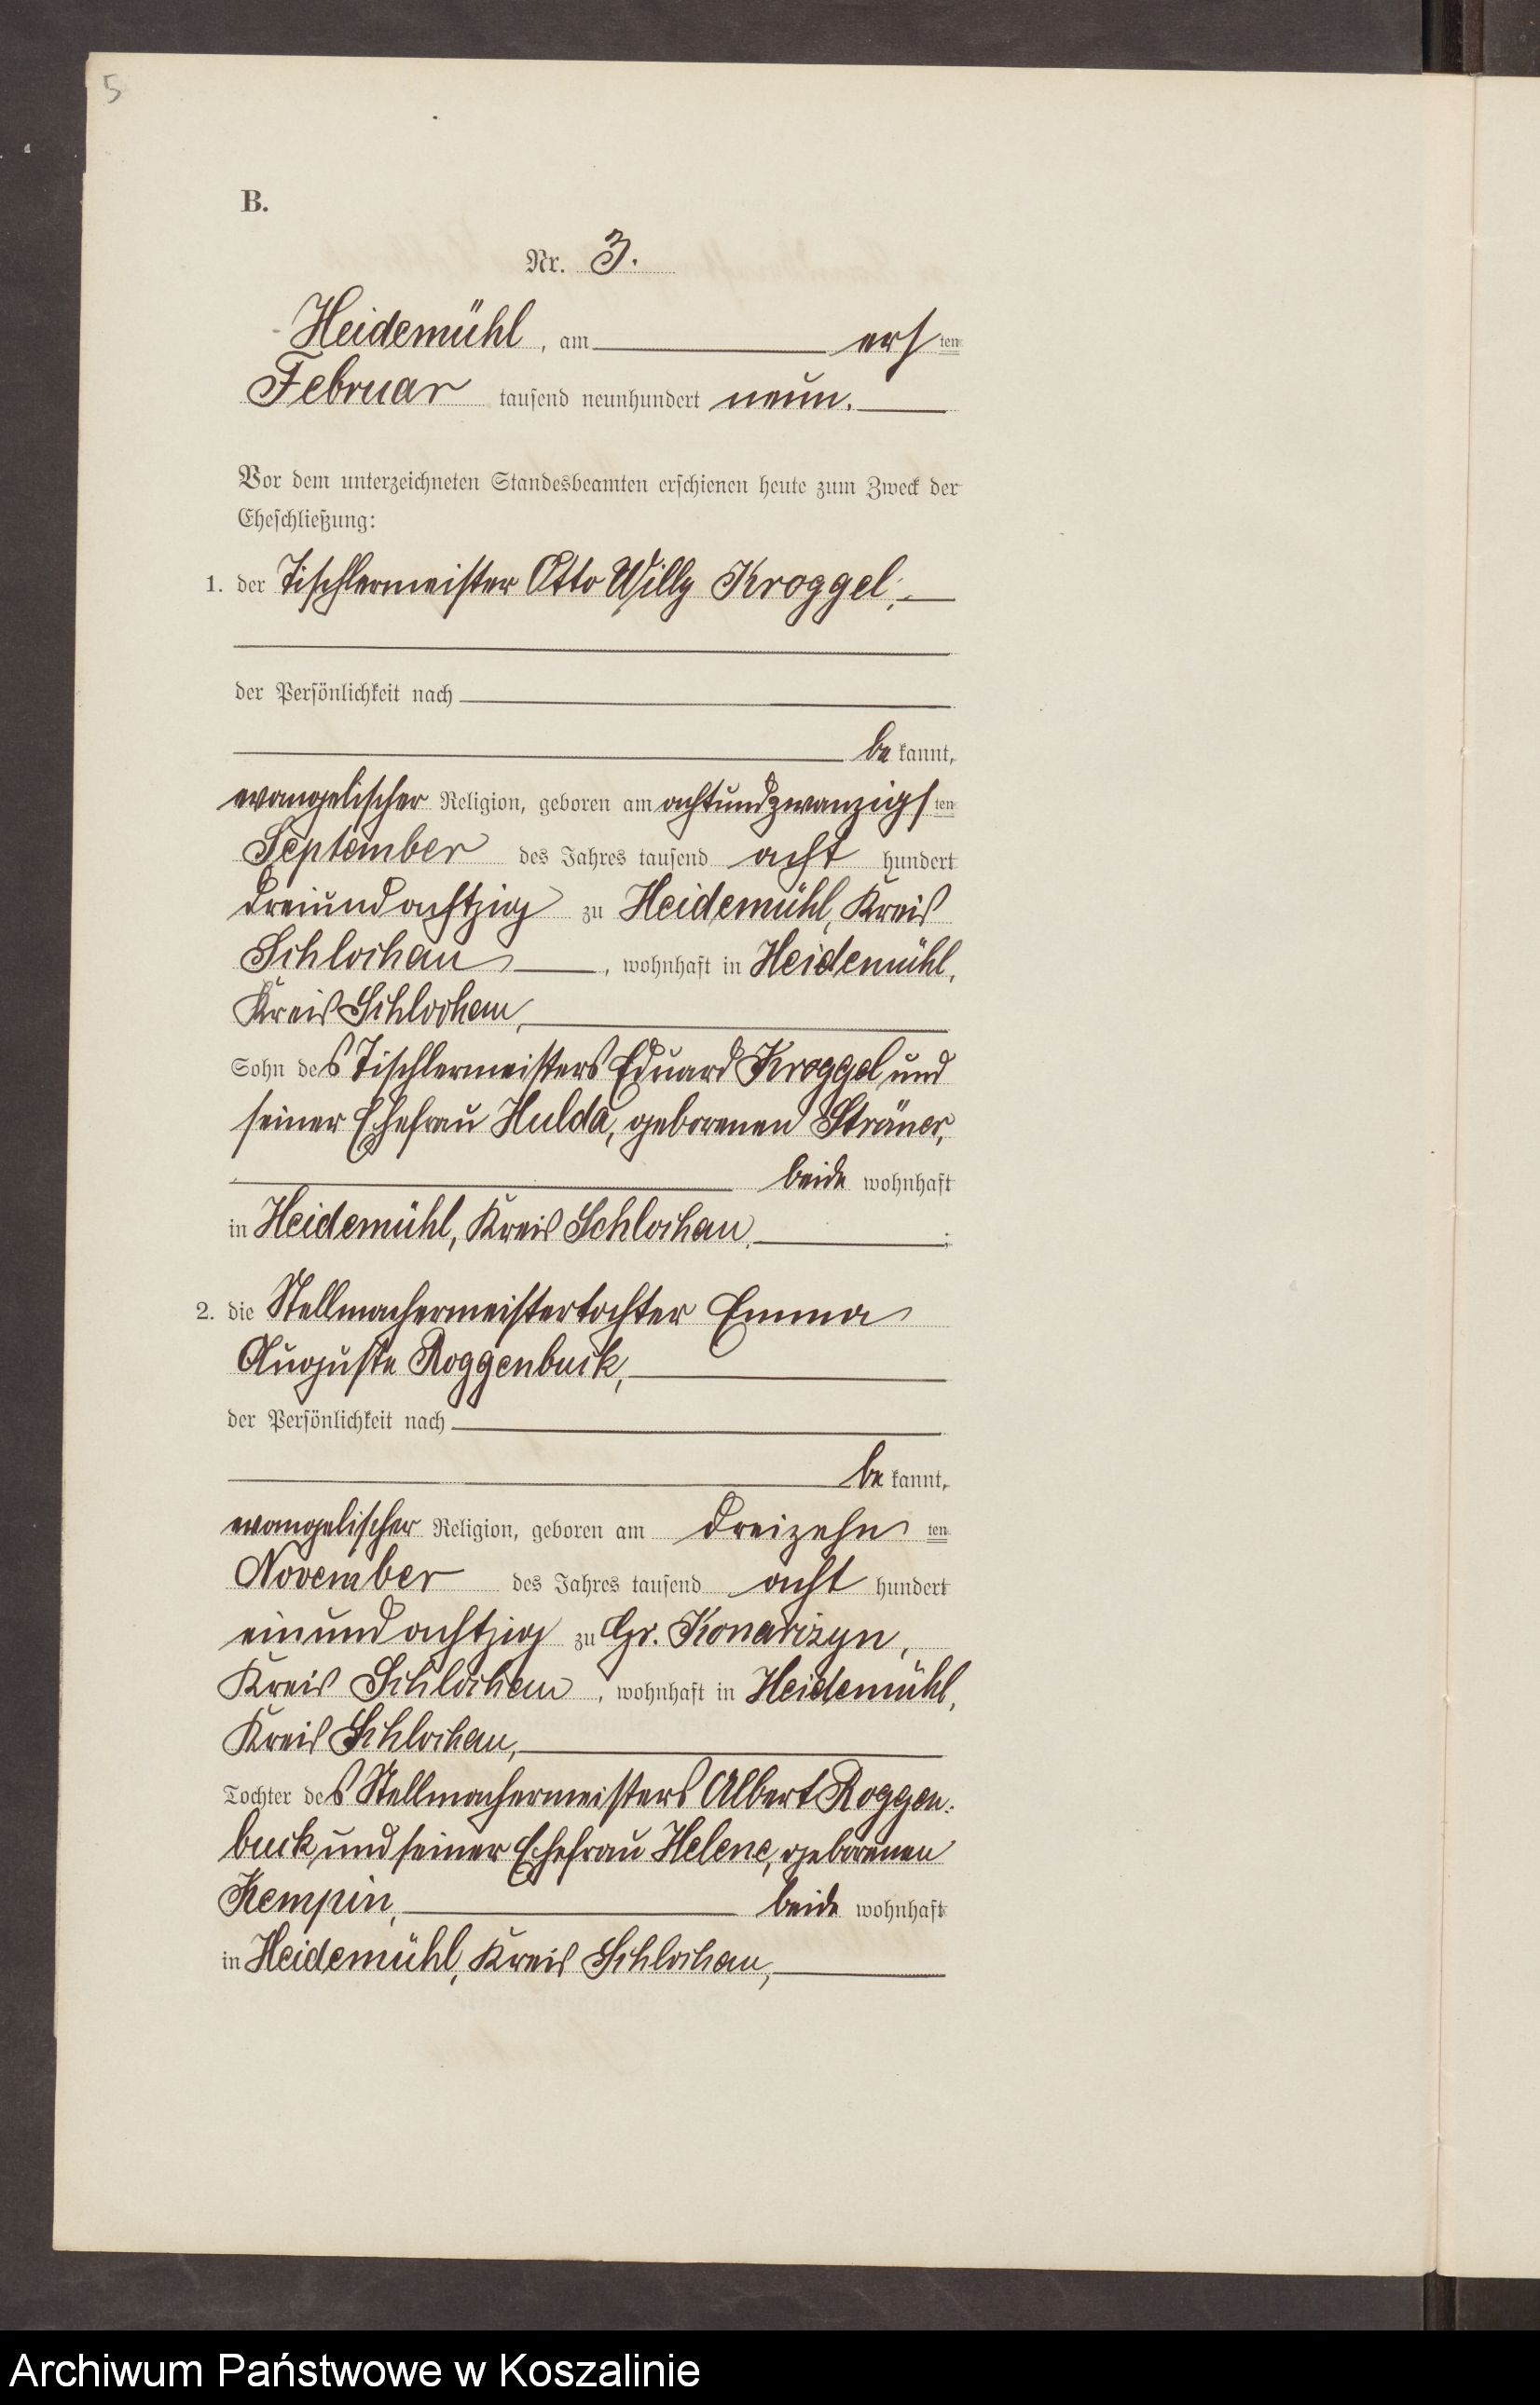 5
B.
Nr. 3.
Heidemühl, am ersten
Februar tausend neunhundert neun.
Vor dem unterzeichneten Standesbeamten erschienen heute zum Zweck der
Eheschließung:
1. der Tischlermeister Otto Willy Kroggel,
der Persönlichkeit nach
bekannt,
evangelischer Religion, geboren am achtundzwanzigsten
September des Jahres tausend acht hundert
dreiundachtzig zu Heidemühl, Kreis
Schlochau, wohnhaft in Heidemühl,
Kreis Schlochau,
Sohn des Tischlermeisters Eduard Kroggel und
seiner Ehefrau Hulda, geborenen Sträner,
beide wohnhaft
in Heidemühl, Kreis Schlochau,;
2. die Stellmachermeistertochter Emma
Auguste Roggenbuck,
der Persönlichkeit nach
bekannt,
evangelischer Religion, geboren am dreizehnten
November des Jahres tausend acht hundert
einundachtzig zu Gr. Konarczyn,
Kreis Schlochau, wohnhaft in Heidemühl,
Kreis Schlochau,
Tochter des Stellmachermeisters Albert Roggen-
buck und seiner Ehefrau Helene, geborenen
Kempin, beide wohnhaft
in Heidemühl, Kreis Schlochau,
Archiwum Państwowe w Koszalinie